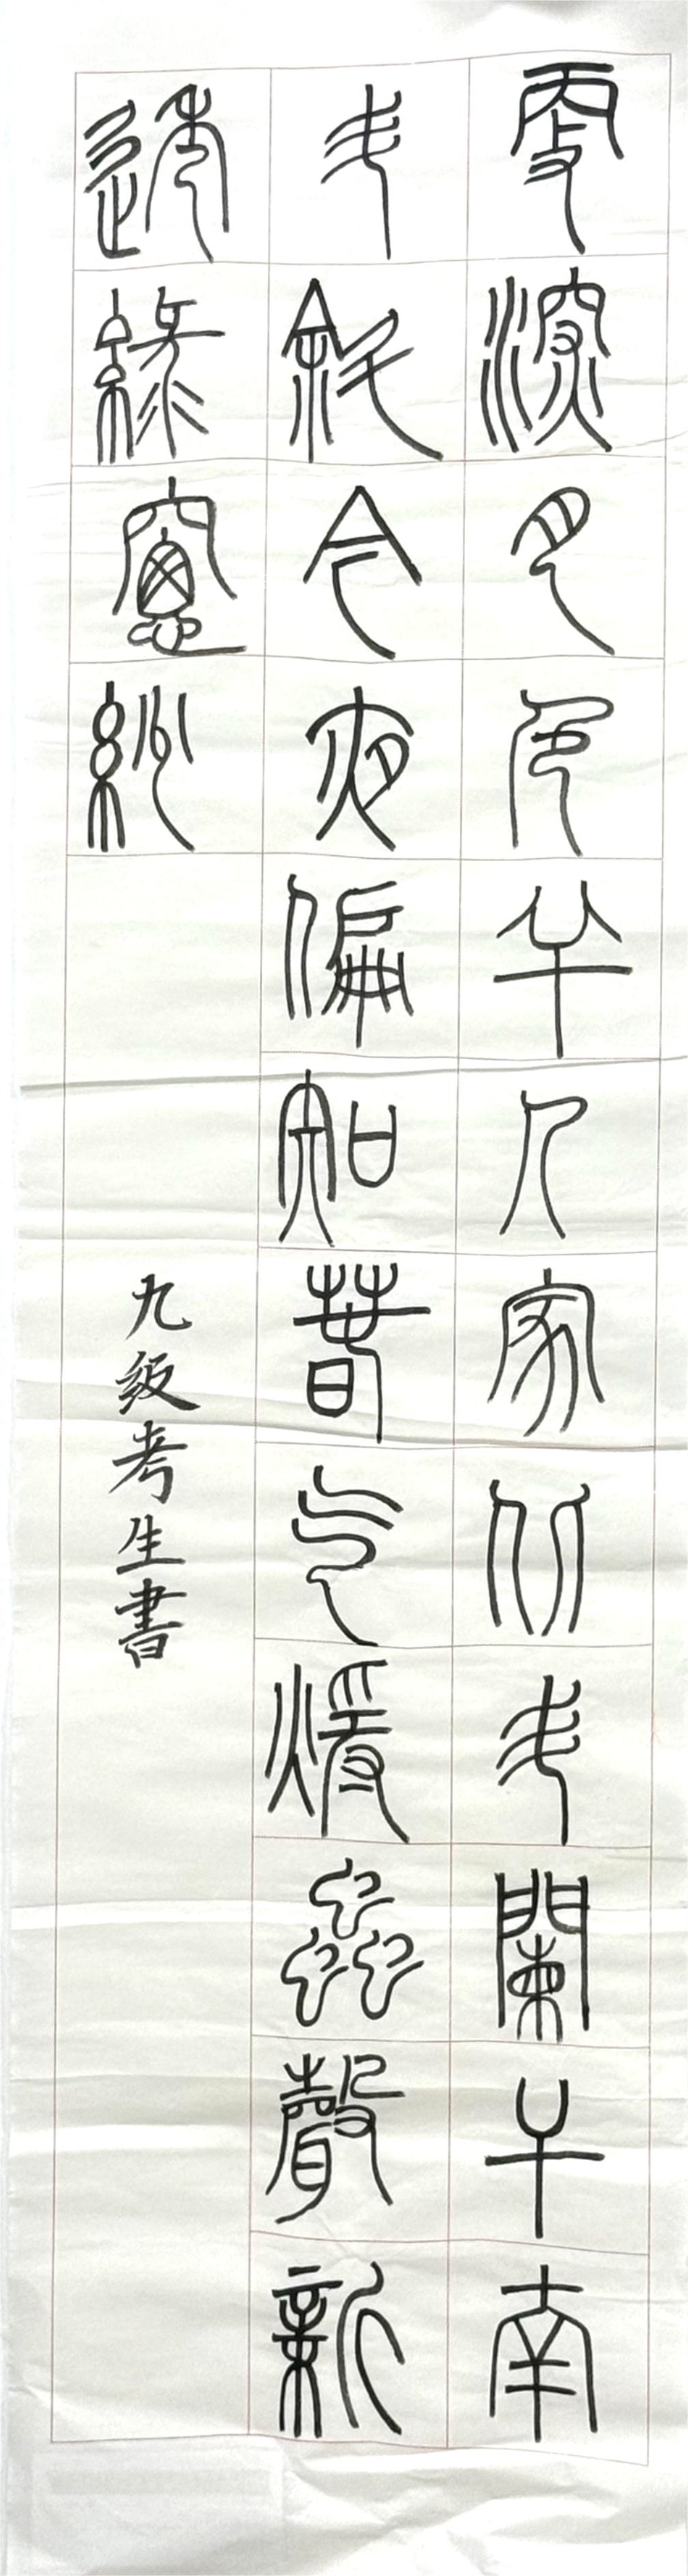 更深月色半人家北斗闌干南
斗斜今夜偏知春气煖蟲聲新
透綠窻紗
九級考生書